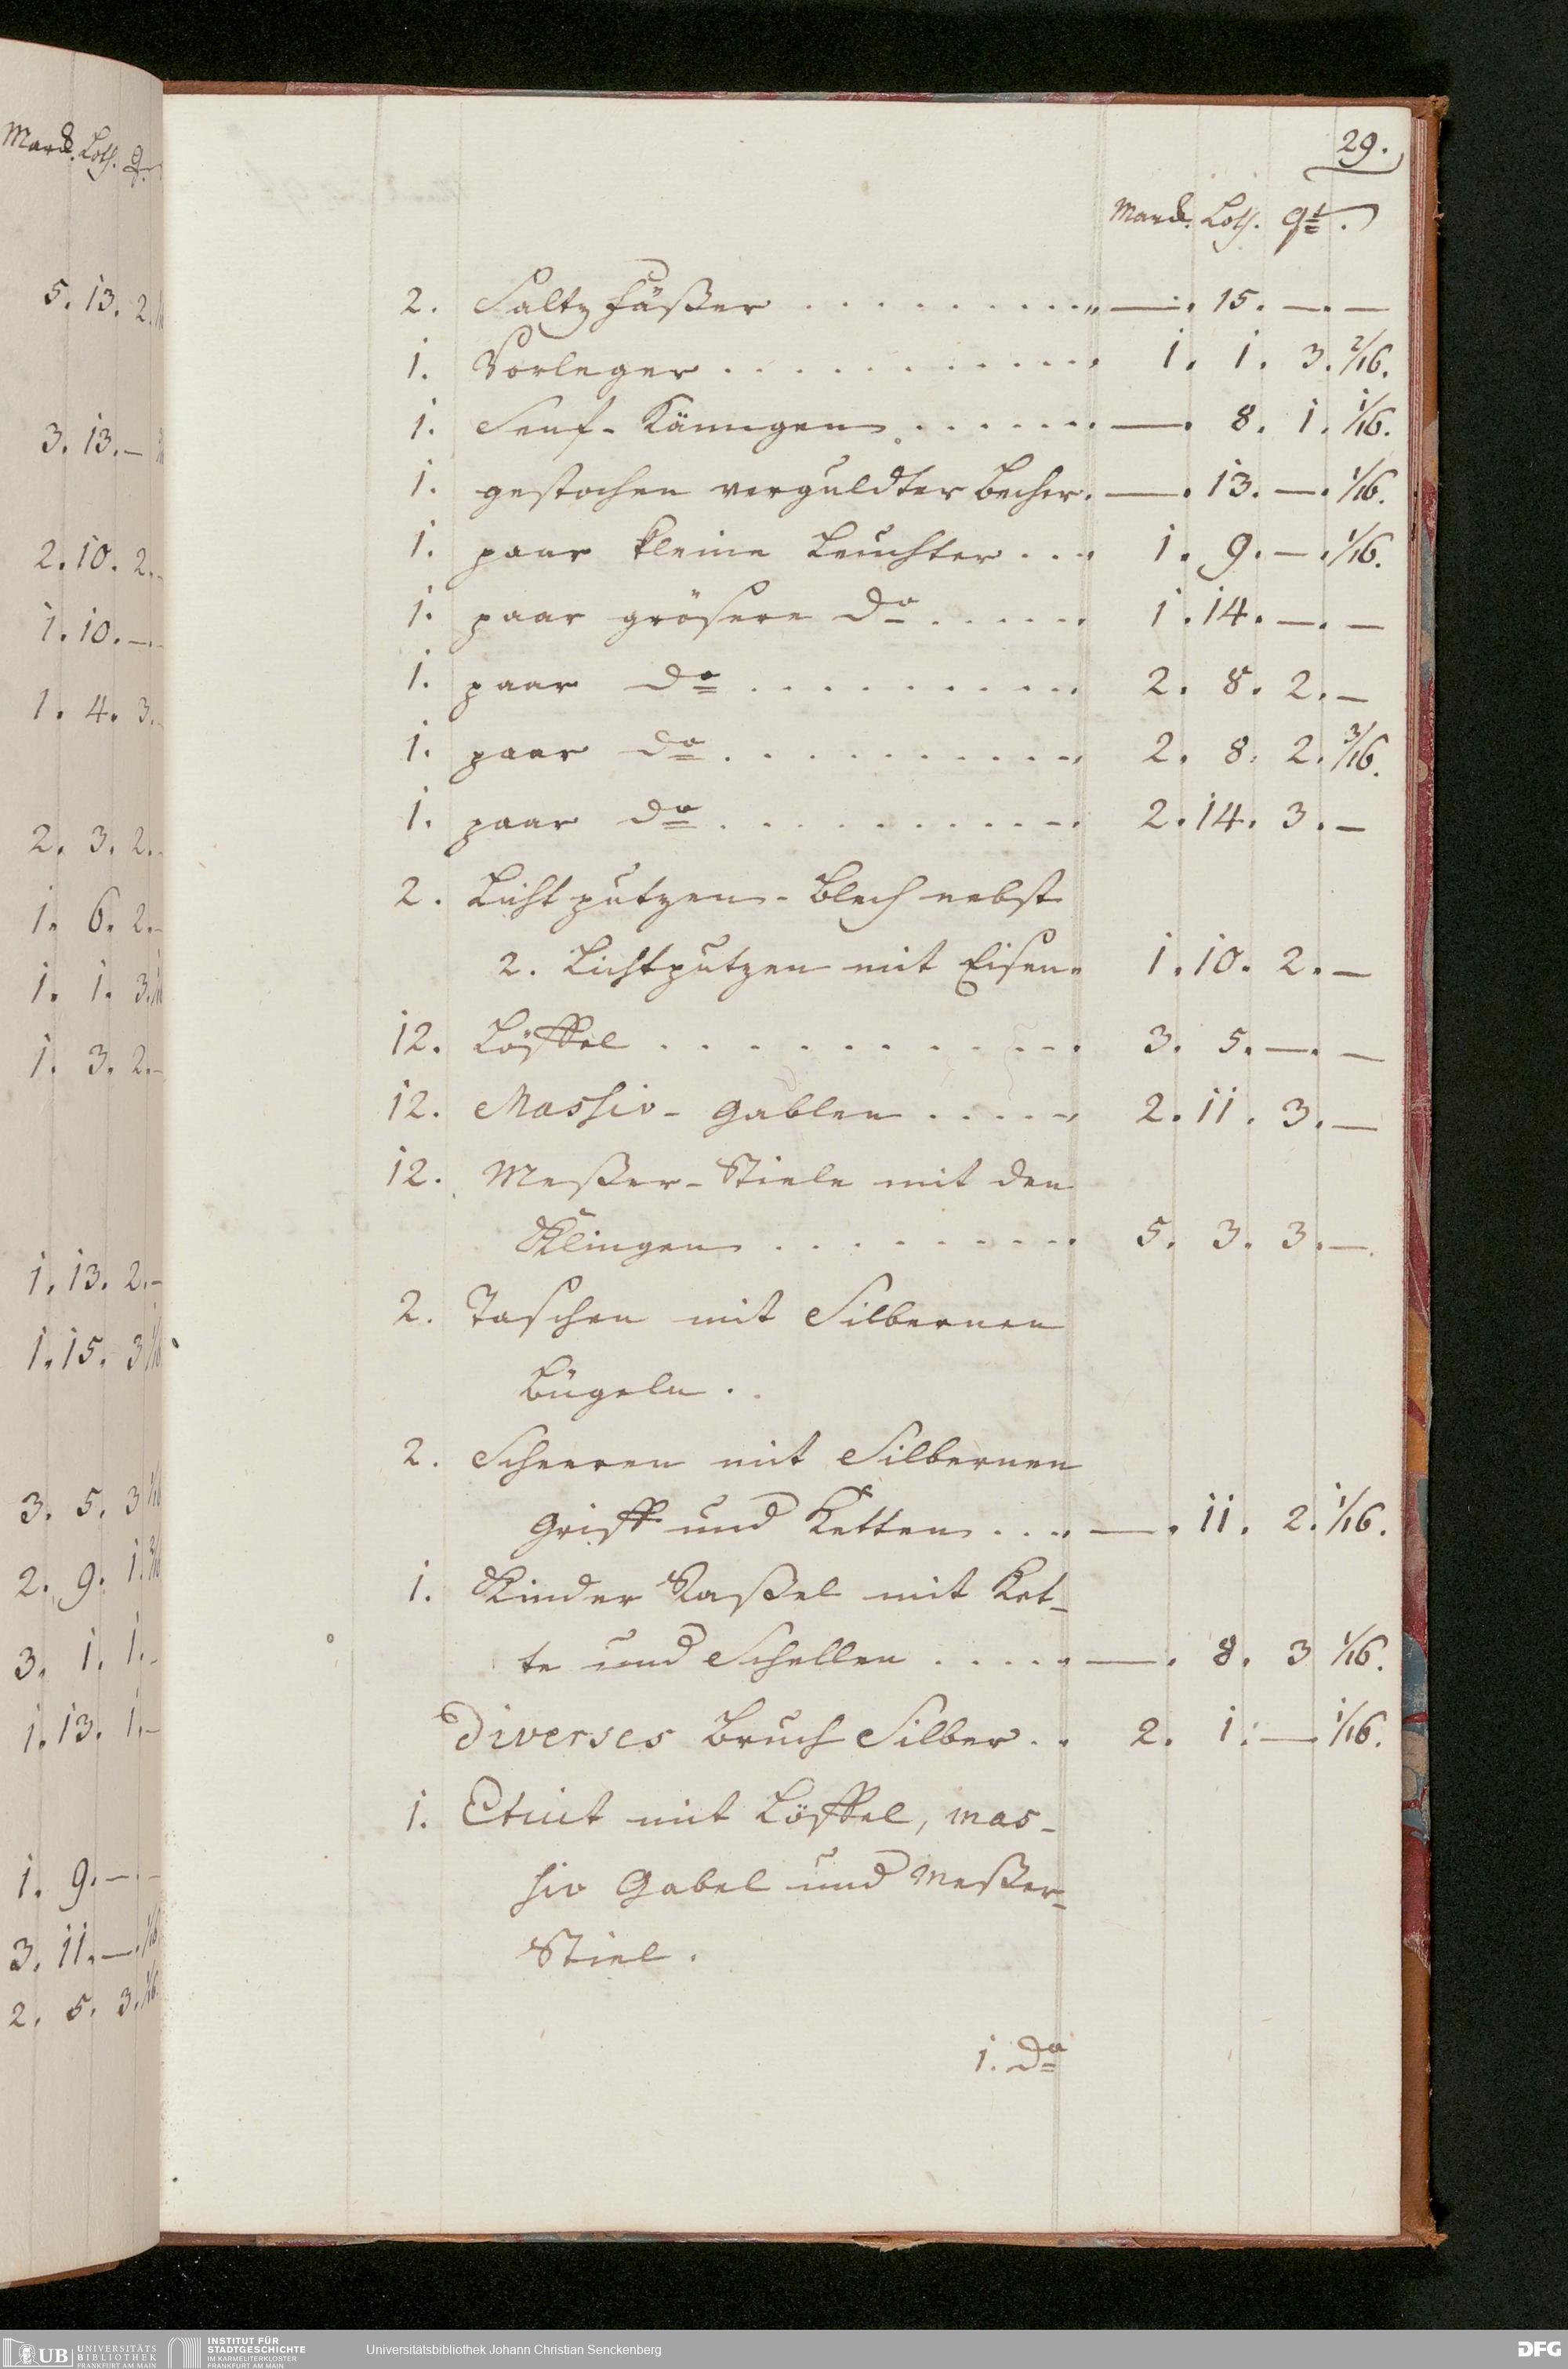 Marck. Loth. q
5. 13. 2.
3. 13. —
2. 10. 2. -
1. 10. — -
1. 4. 3.
2. 3. 2. -
1. 6. 2. -
1. 1. 3.
1. 3. 2. -
1. 13. 2. -
1. 15. 3
3. 5. 3
2. 9. 1.
3. 1. 1. -
1. 13. 1. -
1. 9. — -
3. 11. —. 1/16
2. 5. 3. 1/16
29.
Marck. Loth. qt.
2. Saltzfäßer . . . . . . . . . . —. 15. —. —
1. Vorleger . . . . . . . . . . . 1. 1. 3. 2/16.
1. Senf-Känngen . . . . . . . —. 8. 1. 1/16.
1. gestochen verguldter Becher. —. 13. —. 1/16.
1. paar kleine Leuchter . . . . 1. 9. —. 1/16.
1. paar grösere do . . . . . . 1. 14. —. —
1. paar do . . . . . . . . . . 2. 8. 2. —
1. paar do . . . . . . . . . . 2. 8. 2. 3/16.
1. paar do . . . . . . . . . . . 2. 14. 3. —
2. Lichtputzen-Blech nebst
2. Lichtputzen mit Eisen. 1. 10. 2. —
12. Löffel . . . . . . . . . . . . 3. 5. —. —
12. Massiv-Gablen . . . . . 2. 11. 3. —
12. Meßer-Stiele mit den
Klingen . . . . . . . . . 5. 3. 3. —.
2. Taschen mit Silbernen
Bügeln . .
2. Scheeren mit Silbernen
Griff und Ketten . . . . —. 11. 2. 1/16.
1. Kinder Raßel mit Ket-
te und Schellen . . . . . —. 8. 3 1/16.
Diverses Bruch Silber . . 2. 1. —. 1/16.
1. Etuit mit Löffel, mas-
siv Gabel und Meßer-
Stiel.
1. do
UB UNIVERSITÄTS
BIBLIOTHEK
FRANKFURT AM MAIN
INSTITUT FÜR
STADTGESCHICHTE
IM KARMELITERKLOSTER
FRANKFURT AM MAIN
Universitätsbibliothek Johann Christian Senckenberg
DFG